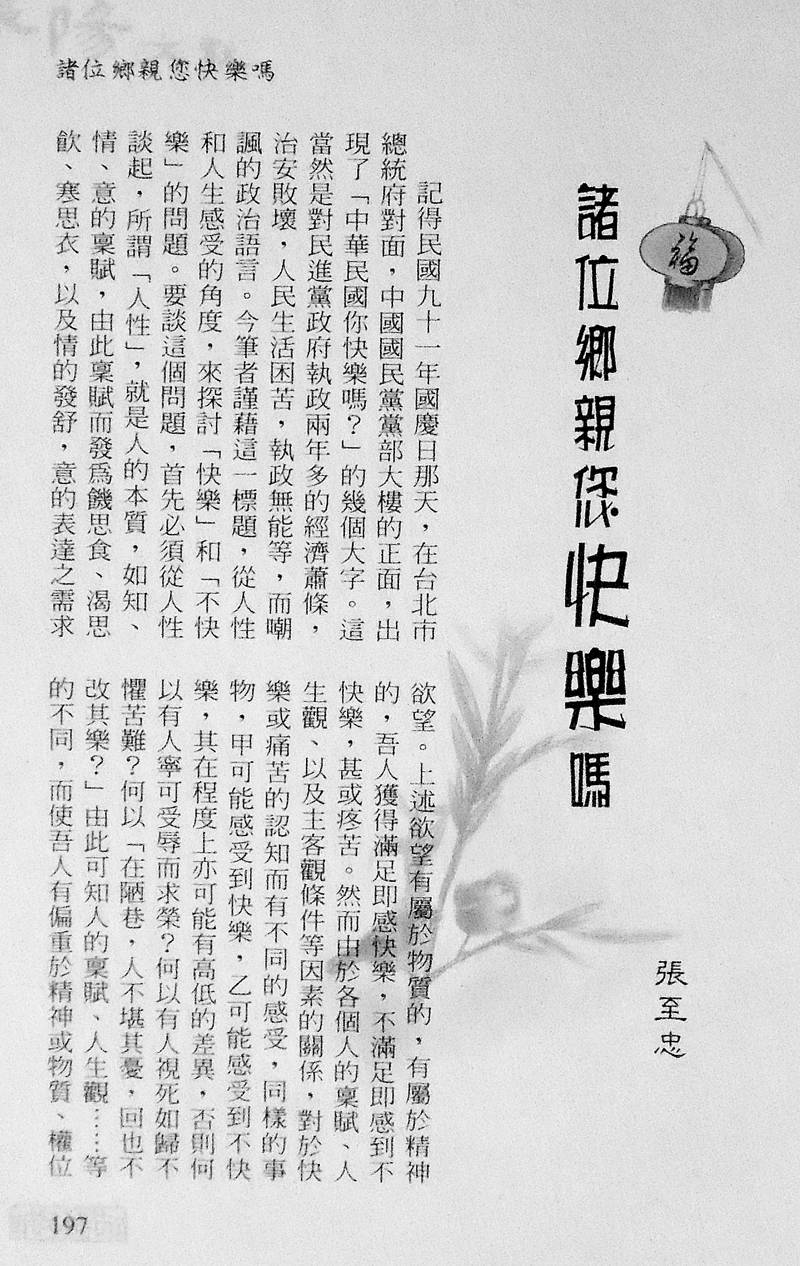 諸位鄉親您快樂嗎
福
諸位鄉親您快樂嗎
張至忠
記得民國九十一年國慶日那天，在台北市
總統府對面，中國國民黨黨部大樓的正面，出
現了「中華民國你快樂嗎？」的幾個大字。這
當然是對民進黨政府執政兩年多的經濟蕭條，
治安敗壞，人民生活困苦，執政無能等，而嘲
諷的政治語言。今筆者謹藉這一標題，從人性
和人生感受的角度，來探討「快樂」和「不快
樂」的問題。要談這個問題，首先必須從人性
談起，所謂「人性」，就是人的本質，如知、
情、意的稟賦，由此稟賦而發為饑思食、渴思
飲、寒思衣，以及情的發舒，意的表達之需求
欲望。上述欲望有屬於物質的，有屬於精神
的，吾人獲得滿足即感快樂，不滿足即感到不
快樂，甚或疼苦。然而由於各個人的稟賦、人
生觀、以及主客觀條件等因素的關係，對於快
樂或痛苦的認知而有不同的感受，同樣的事
物，甲可能感受到快樂，乙可能感受到不快
樂，其在程度上亦可能有高低的差異，否則何
以有人寧可受辱而求榮？何以有人視死如歸不
懼苦難？何以「在陋巷，人不堪其憂，回也不
改其樂？」由此可知人的稟賦、人生觀……等
的不同，而使吾人有偏重於精神或物質、權位
197